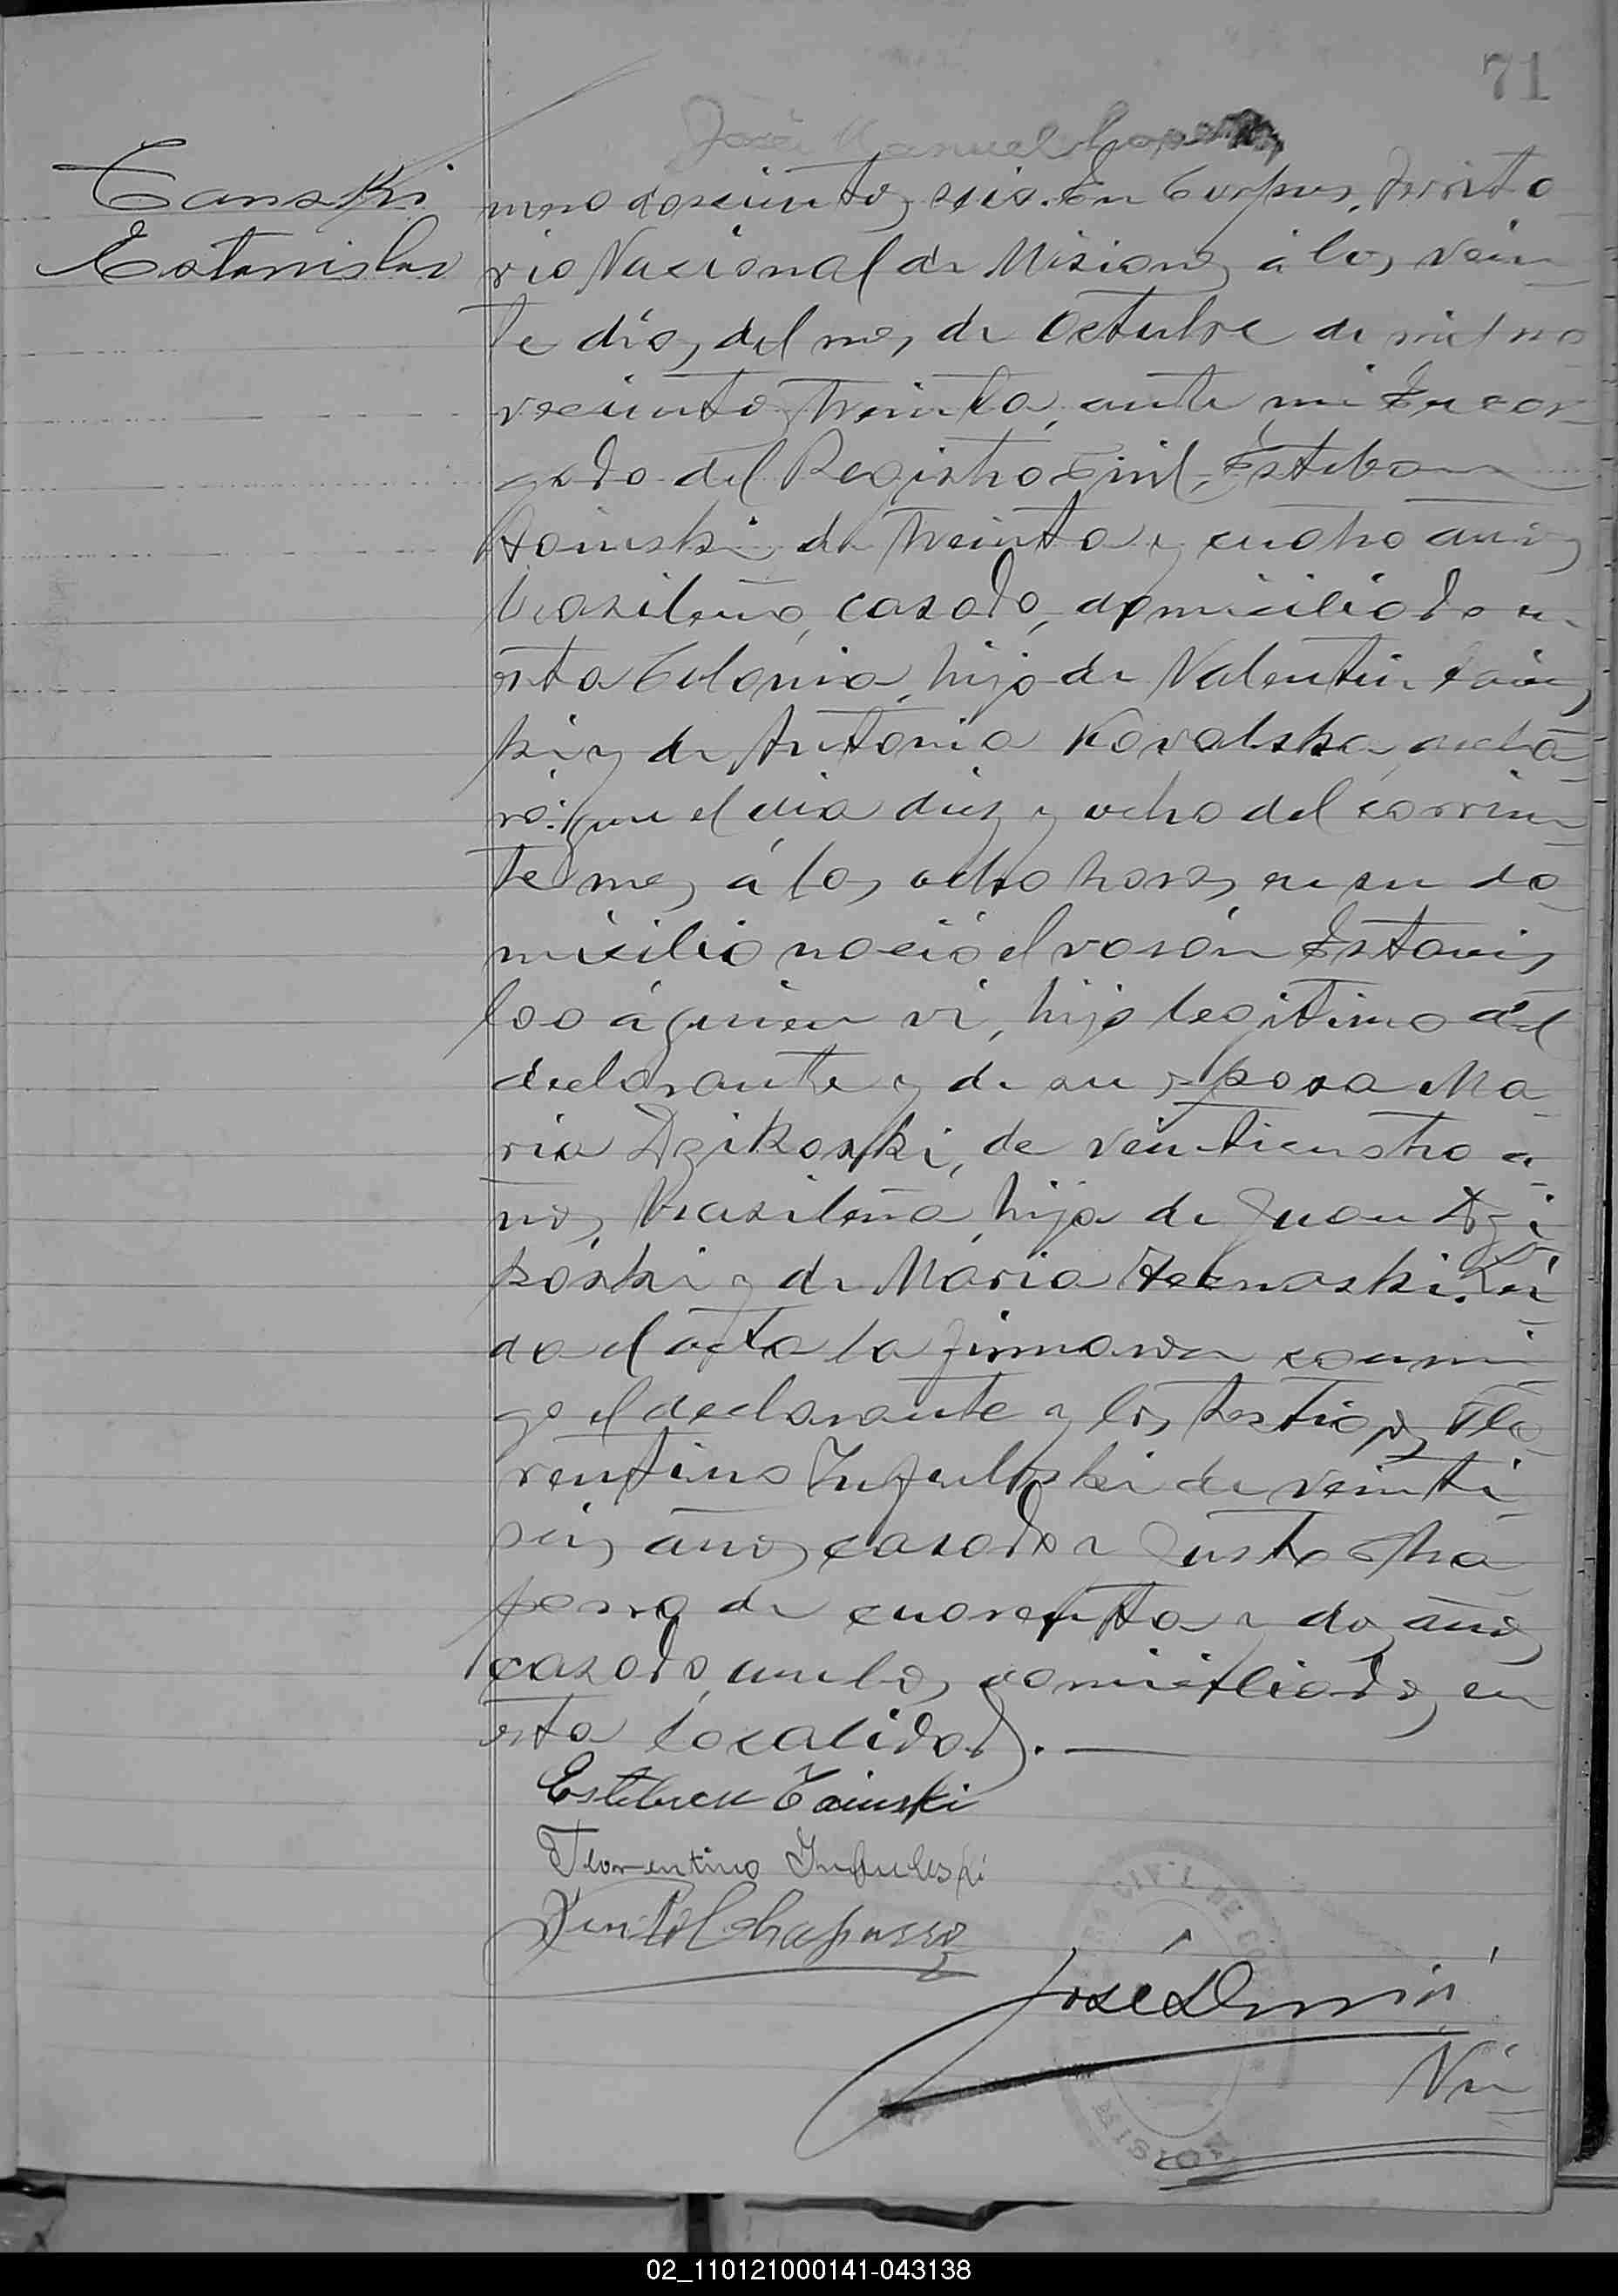 71
José Manuel Lopez
Tanski
Estanislao
mero doscientos seis. En Corpus, Territo-
rio Nacional de Misiones á los vein-
te días del mes de Octubre de mil no-
vecientos treinta, ante mi Encar-
gado del Registro Civil, Esteban
Tainski de treinta y cuatro años
brasileño, casado, domiciliado en
esta Colonia, hijo de Valentin Tains-
ki y de Antonia Kovalska, decla-
ró: que el dia diez y ocho del corrien-
te mes á las ocho horas en su do-
micilio nació el varón Estanis-
lao á quien vi, hijo legitimo del
declarante y de su esposa Ma-
ria Dzikoski, de veinticuatro a-
ños, brasileña, hija de Juan Dzi-
koski y de Maria. Lei-
da el acta la firmaron conmi-
go el declarante y los testigos Flo-
rentino Infuleski de veinti-
seis años casado y Justo Cha-
parro de cuarenta y dos años
casado, ambos domiciliados en
esta localidad.
Esteban Tainski
Florentino Infuleski
Justo Chaparro
José
Nú-
CIVIL DE CO
MISIONES
02_110121000141-043138